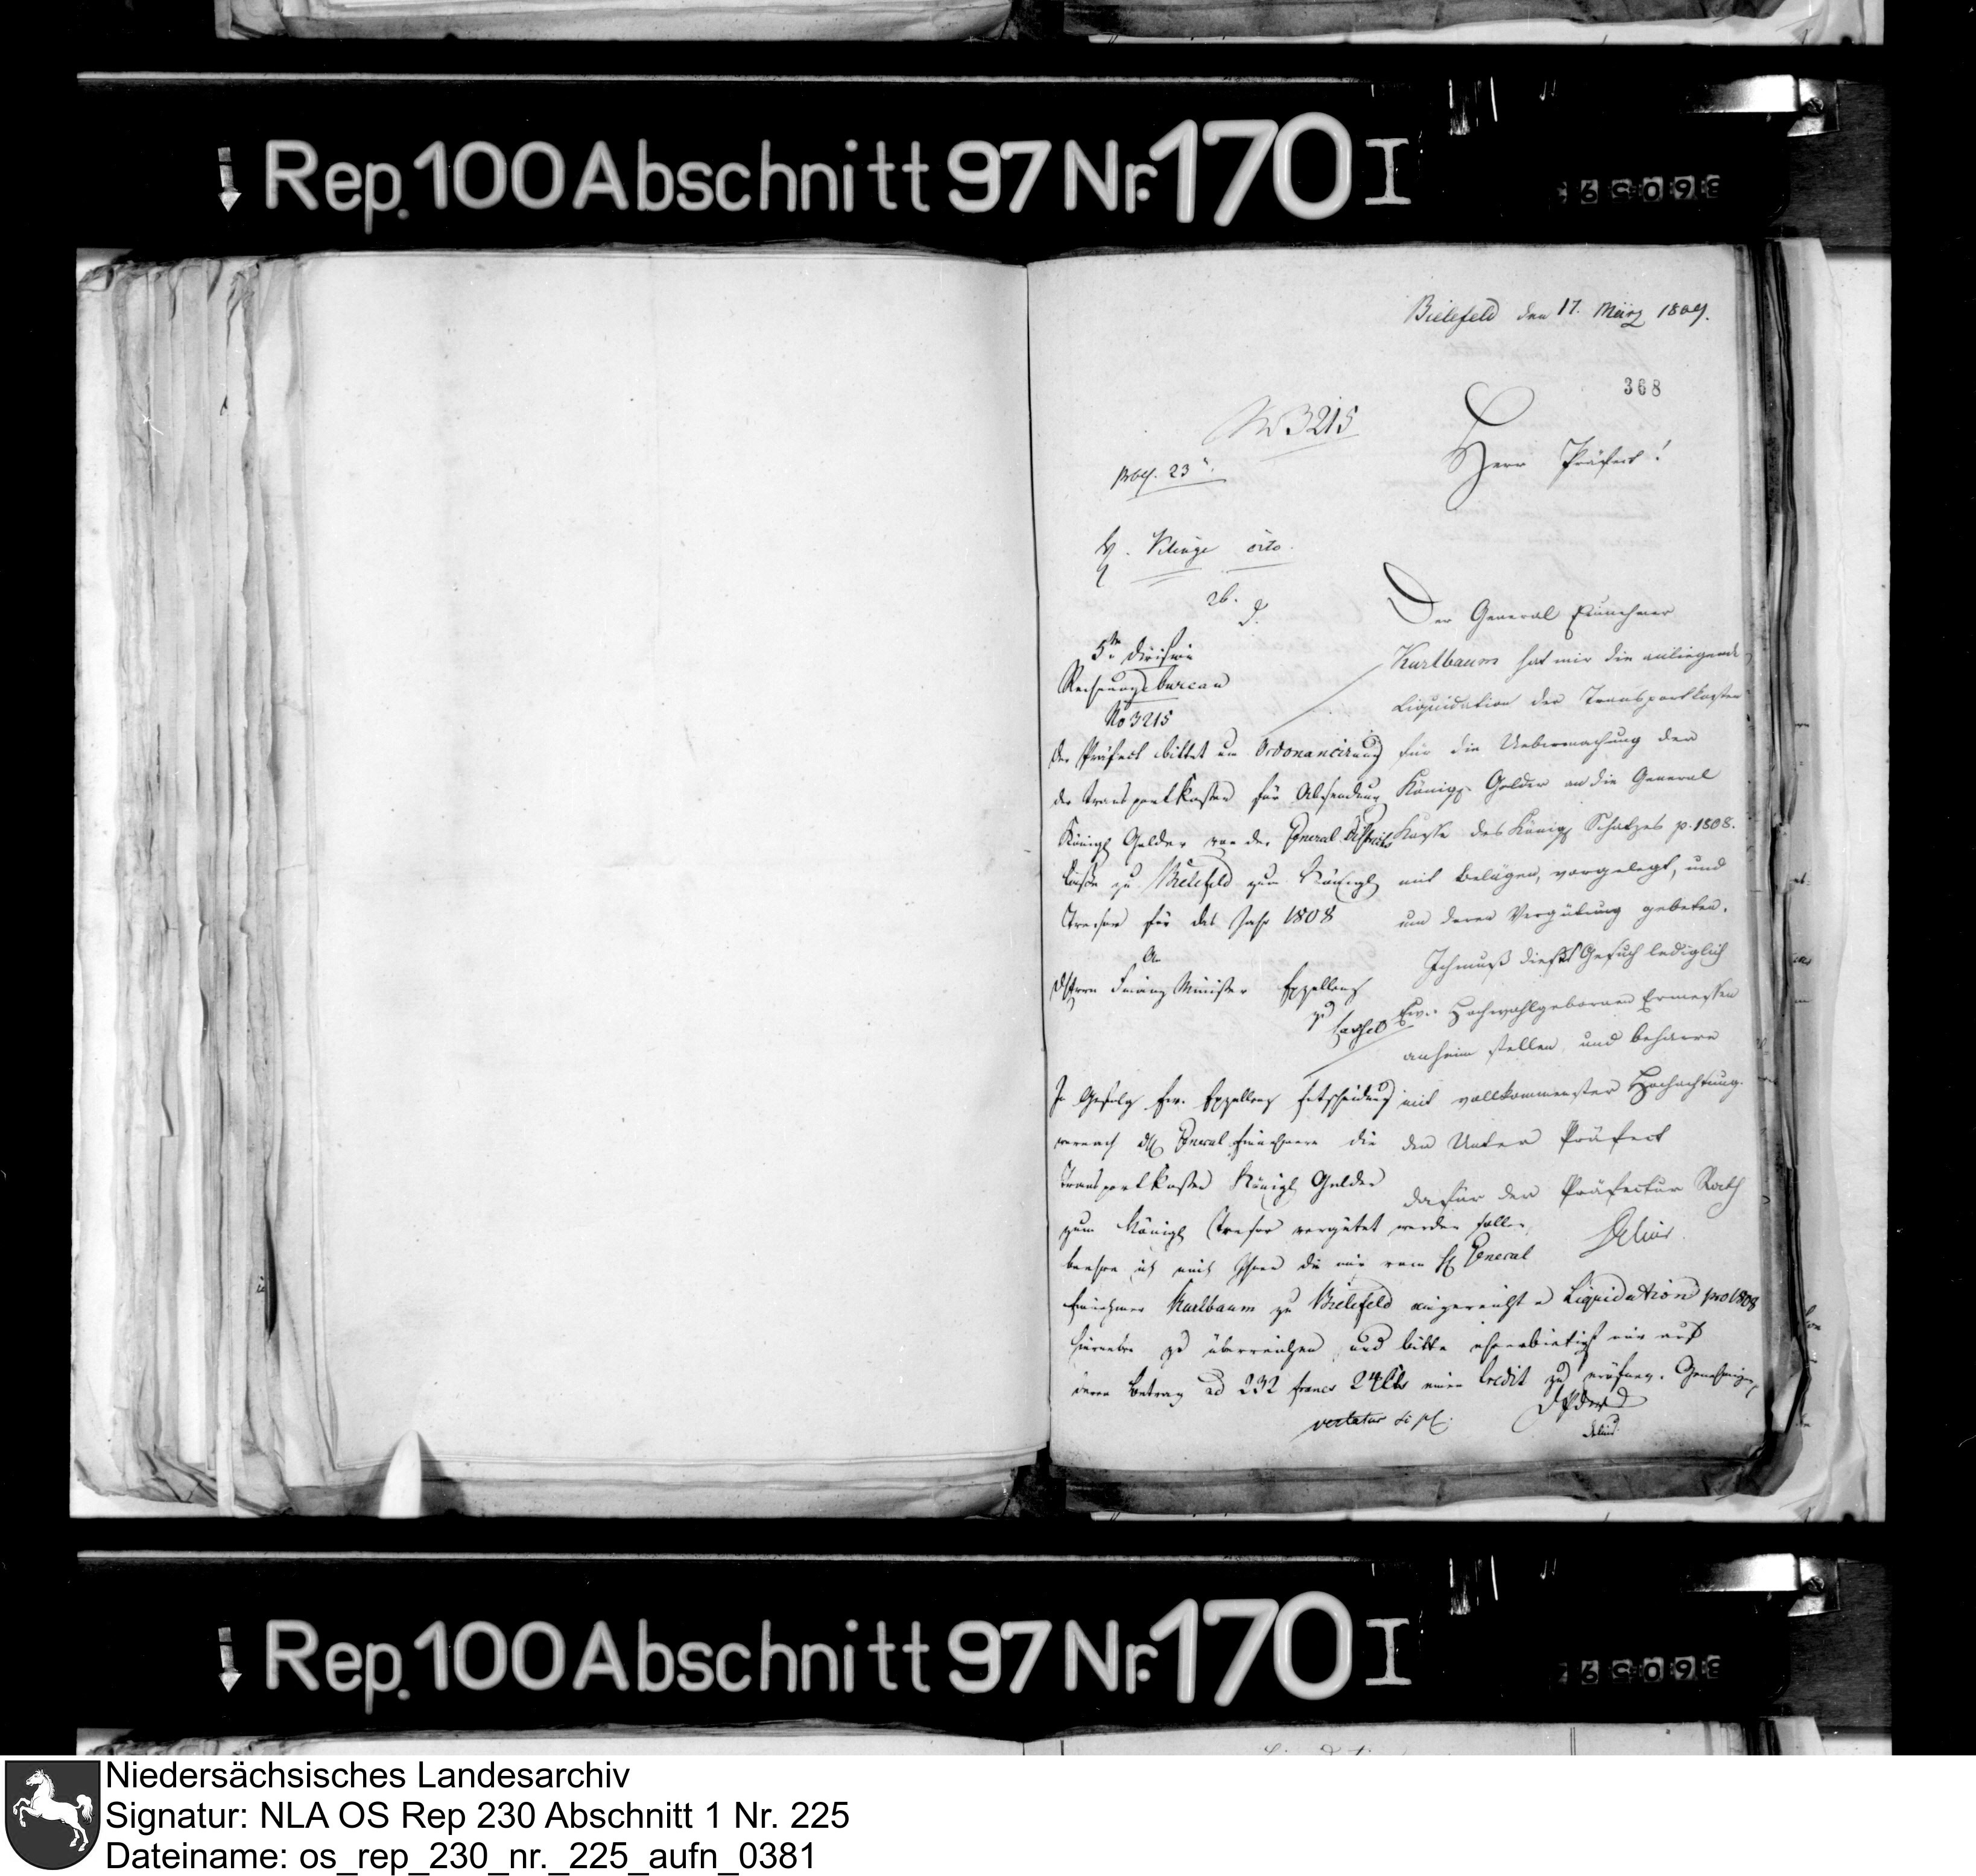 Rep. 100 Abschnitt 97 Nr. 170 I
Bielefeld den 17. März 1809.
368
No 3215
Herr Präfect!
23
cito.
26.
5te Division
Rechnungs bureau
No 3215
Der General Einnehmer
Kurlbaum hat mir die anliegende
Liquidation der Transportkosten
für die Uebermachung der
Königl. Gelder an die General
Kasse des Königl. Schatzes p. 1808.
mit Belägen, vorgelegt, und
um deren Vergütung gebeten.
Ich muß dieses Gesuch lediglich
Ew. Hochwohlgebornen Ermessen
anheim stellen und beharre
mit vollkommenster Hochachtung.
der Unter Präfect
dafür der Präfectur Rath
Delius.
Der Präfect bittet um Ordonancirung
der Transportkosten für Absendung
Königl Gelder von der General Districts
Casse zu Bielefeld zum Königl
Tresor für das Jahr 1808
An
des Herrn Finanz Minister Exzellenz
zu Cassel
In Gefolg Ew. Exzellenz Entscheidung
wornach die General Einnehmern die
Transportkosten Königl Gelder
zum Königl Tresor vergütet werden sollen,
beehre ich mich Ihnen die mir vom H General
Einnehmer Kurlbaum zu Bielefeld eingereichte Liquidation pro 1808
hierneben zu überreichen, und bitte ehrerbietigst mir auf
deren Betrag ad 232 francs 24 Cts einen Credit zu eröfnen. Genehmigen
vertatur si pl.
Niedersächsisches Landesarchiv
Signatur: NLA OS Rep 230 Abschnitt 1 Nr. 225
Dateiname: os_rep_230_nr._225_aufn_0381
Rep. 100 Abschnitt 97 Nr. 170 I